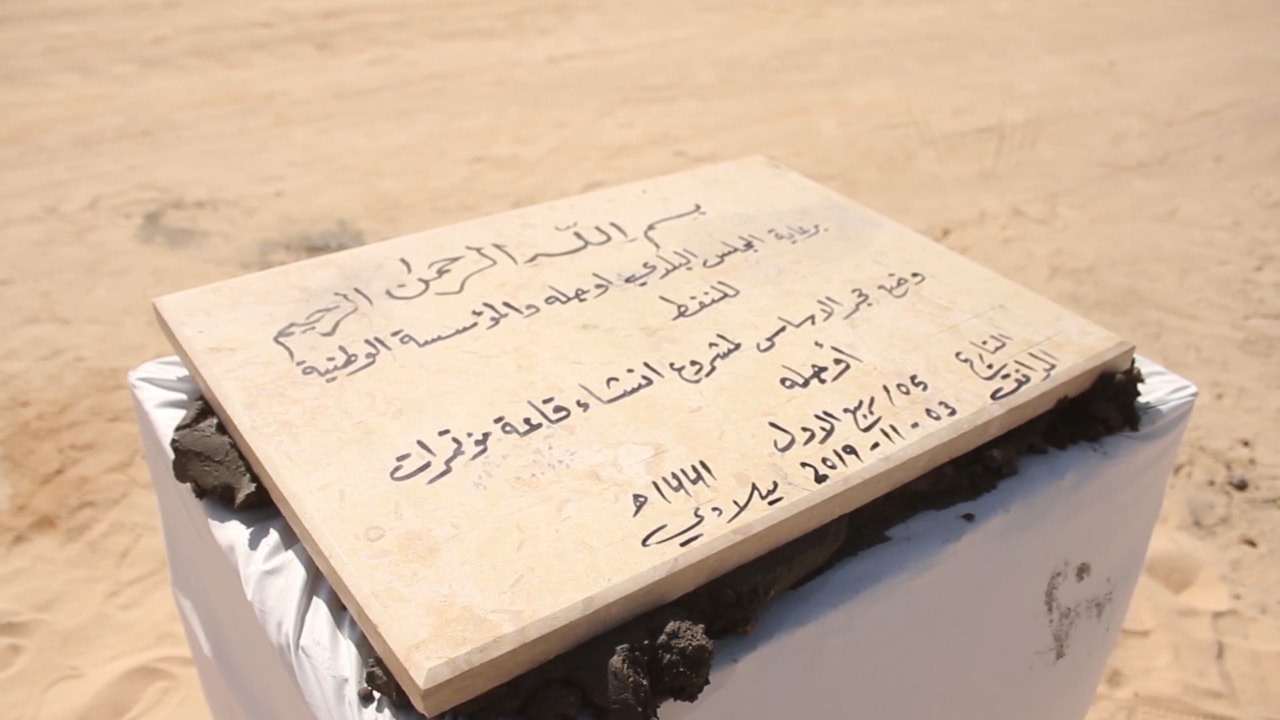 بسم الله الرحمن الرحيم
برعاية المجلس البلدي اوجله والمؤسسة الوطنية
للنفط
وضع حجر الاساس لمشروع انشاء قاعة مؤتمرات
أوجله
التاريخ 05/ ربيع الاول 1441هـ
الموافق 03-11-2019 ميلادي